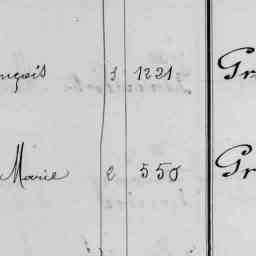 nçois 3 1221 Gr
Marie 2 550 Gr